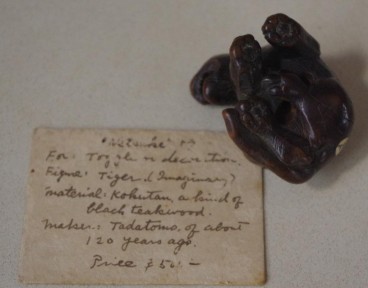 "Netsuke"
For: Toggle or decoration.
Figure: Tiger (Imaginary)
Material: Kokutan, a kind of
black teakwood.
Maker: Tadatomo, of about
120 years ago.
Price $50.—